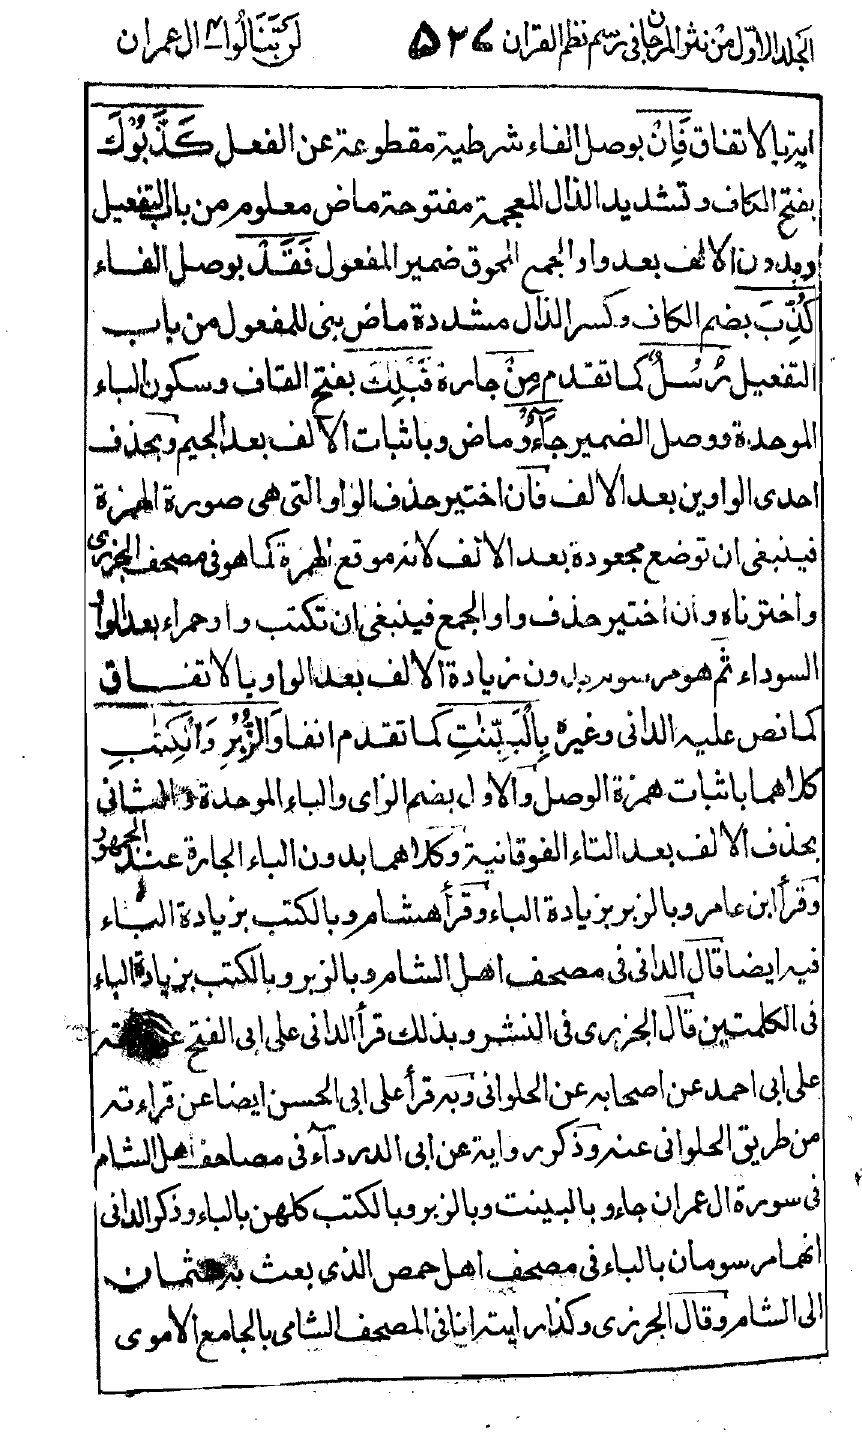 الجلد الاول من نثر المرجان فى رسم نظم القران ۵۲۷ لن تنالوا ۴ ال عمران
اية بالاتفاق فَاِنْ بوصل الفاء شرطية مقطوعة عن الفعل كَذَّبُوكَ
بفتح الكاف وتشديد الذال المعجمة مفتوحة ماض معلوم من باب التفعيل
وبدون الالف بعد واو الجمع للحوق ضمير المفعول فَقَدْ بوصل الفاء
كُذِّبَ بضم الكاف وكسر الذال مشددة ماض بنى للمفعول من باب
التفعيل رُسُلٌ كما تقدم مِنْ جارة قَبْلِكَ بفتح القاف وسكون الباء
الموحدة ووصل الضمير جَآءُو ماض وباثبات الالف بعد الجيم وبحذف
احدى الواوين بعد الالف فان اختير حذف الواو التى هى صورة الهمزة
فينبغى ان توضع مجعودة بعد الالف لانه موقع الهمزة كما هو فى مصحف الجزرى
واخترناه وان اختير حذف واو الجمع فينبغى ان تكتب واو حمراء بعد الواو
السوداء ثم هو مرسوم بدون زيادة الالف بعد الواو بالاتفاق
كما نص عليه الدانى وغيره بِالْبَيِّنٰتِ كما تقدم انفا وَالزُّبُرِ وَالْكِتٰبِ
كلاهما باثبات همزة الوصل والاول بضم الزاى والباء الموحدة والثانى
بحذف الالف بعد التاء الفوقانية وكلاهما بدون الباء الجارة عند الجمهور
وقرأ ابن عامر وبالزبر بزيادة الباء وقرأ هشام وبالكتب بزيادة الباء
فيه ايضا قال الدانى فى مصحف اهل الشام وبالزبر وبالكتب بزيادة الباء
فى الكلمتين قال الجزرى فى النشر وبذلك قرأ الدانى على ابى الفتح
على ابى احمد عن اصحابه عن الحلوانى وبه قرأ على ابى الحسن ايضا عن قراءته
من طريق الحلوانى عنه وذكر رواية عن ابى الدرداء فى مصاحف اهل الشام
فى سورة ال عمران جاءو بالبينت وبالزبر وبالكتب كلهن بالباء وذكر الدانى
انهما مرسومان بالباء فى مصحف اهل حمص الذى بعث به عثمان
الى الشام وقال الجزرى وكذا رايته انا فى المصحف الشامى بالجامع الاموى